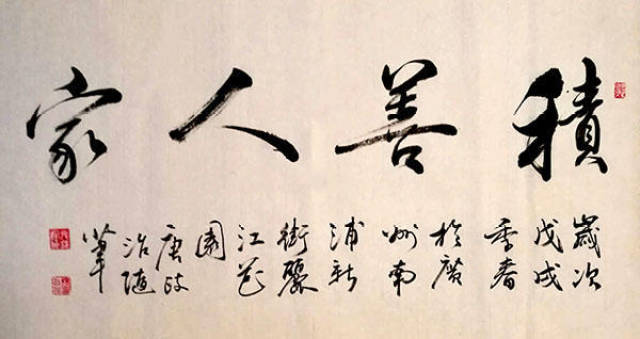 積善人家
歲次
戊戌
季春
於廣
州南
浦新
街麗
江花
園
唐
治随
筆